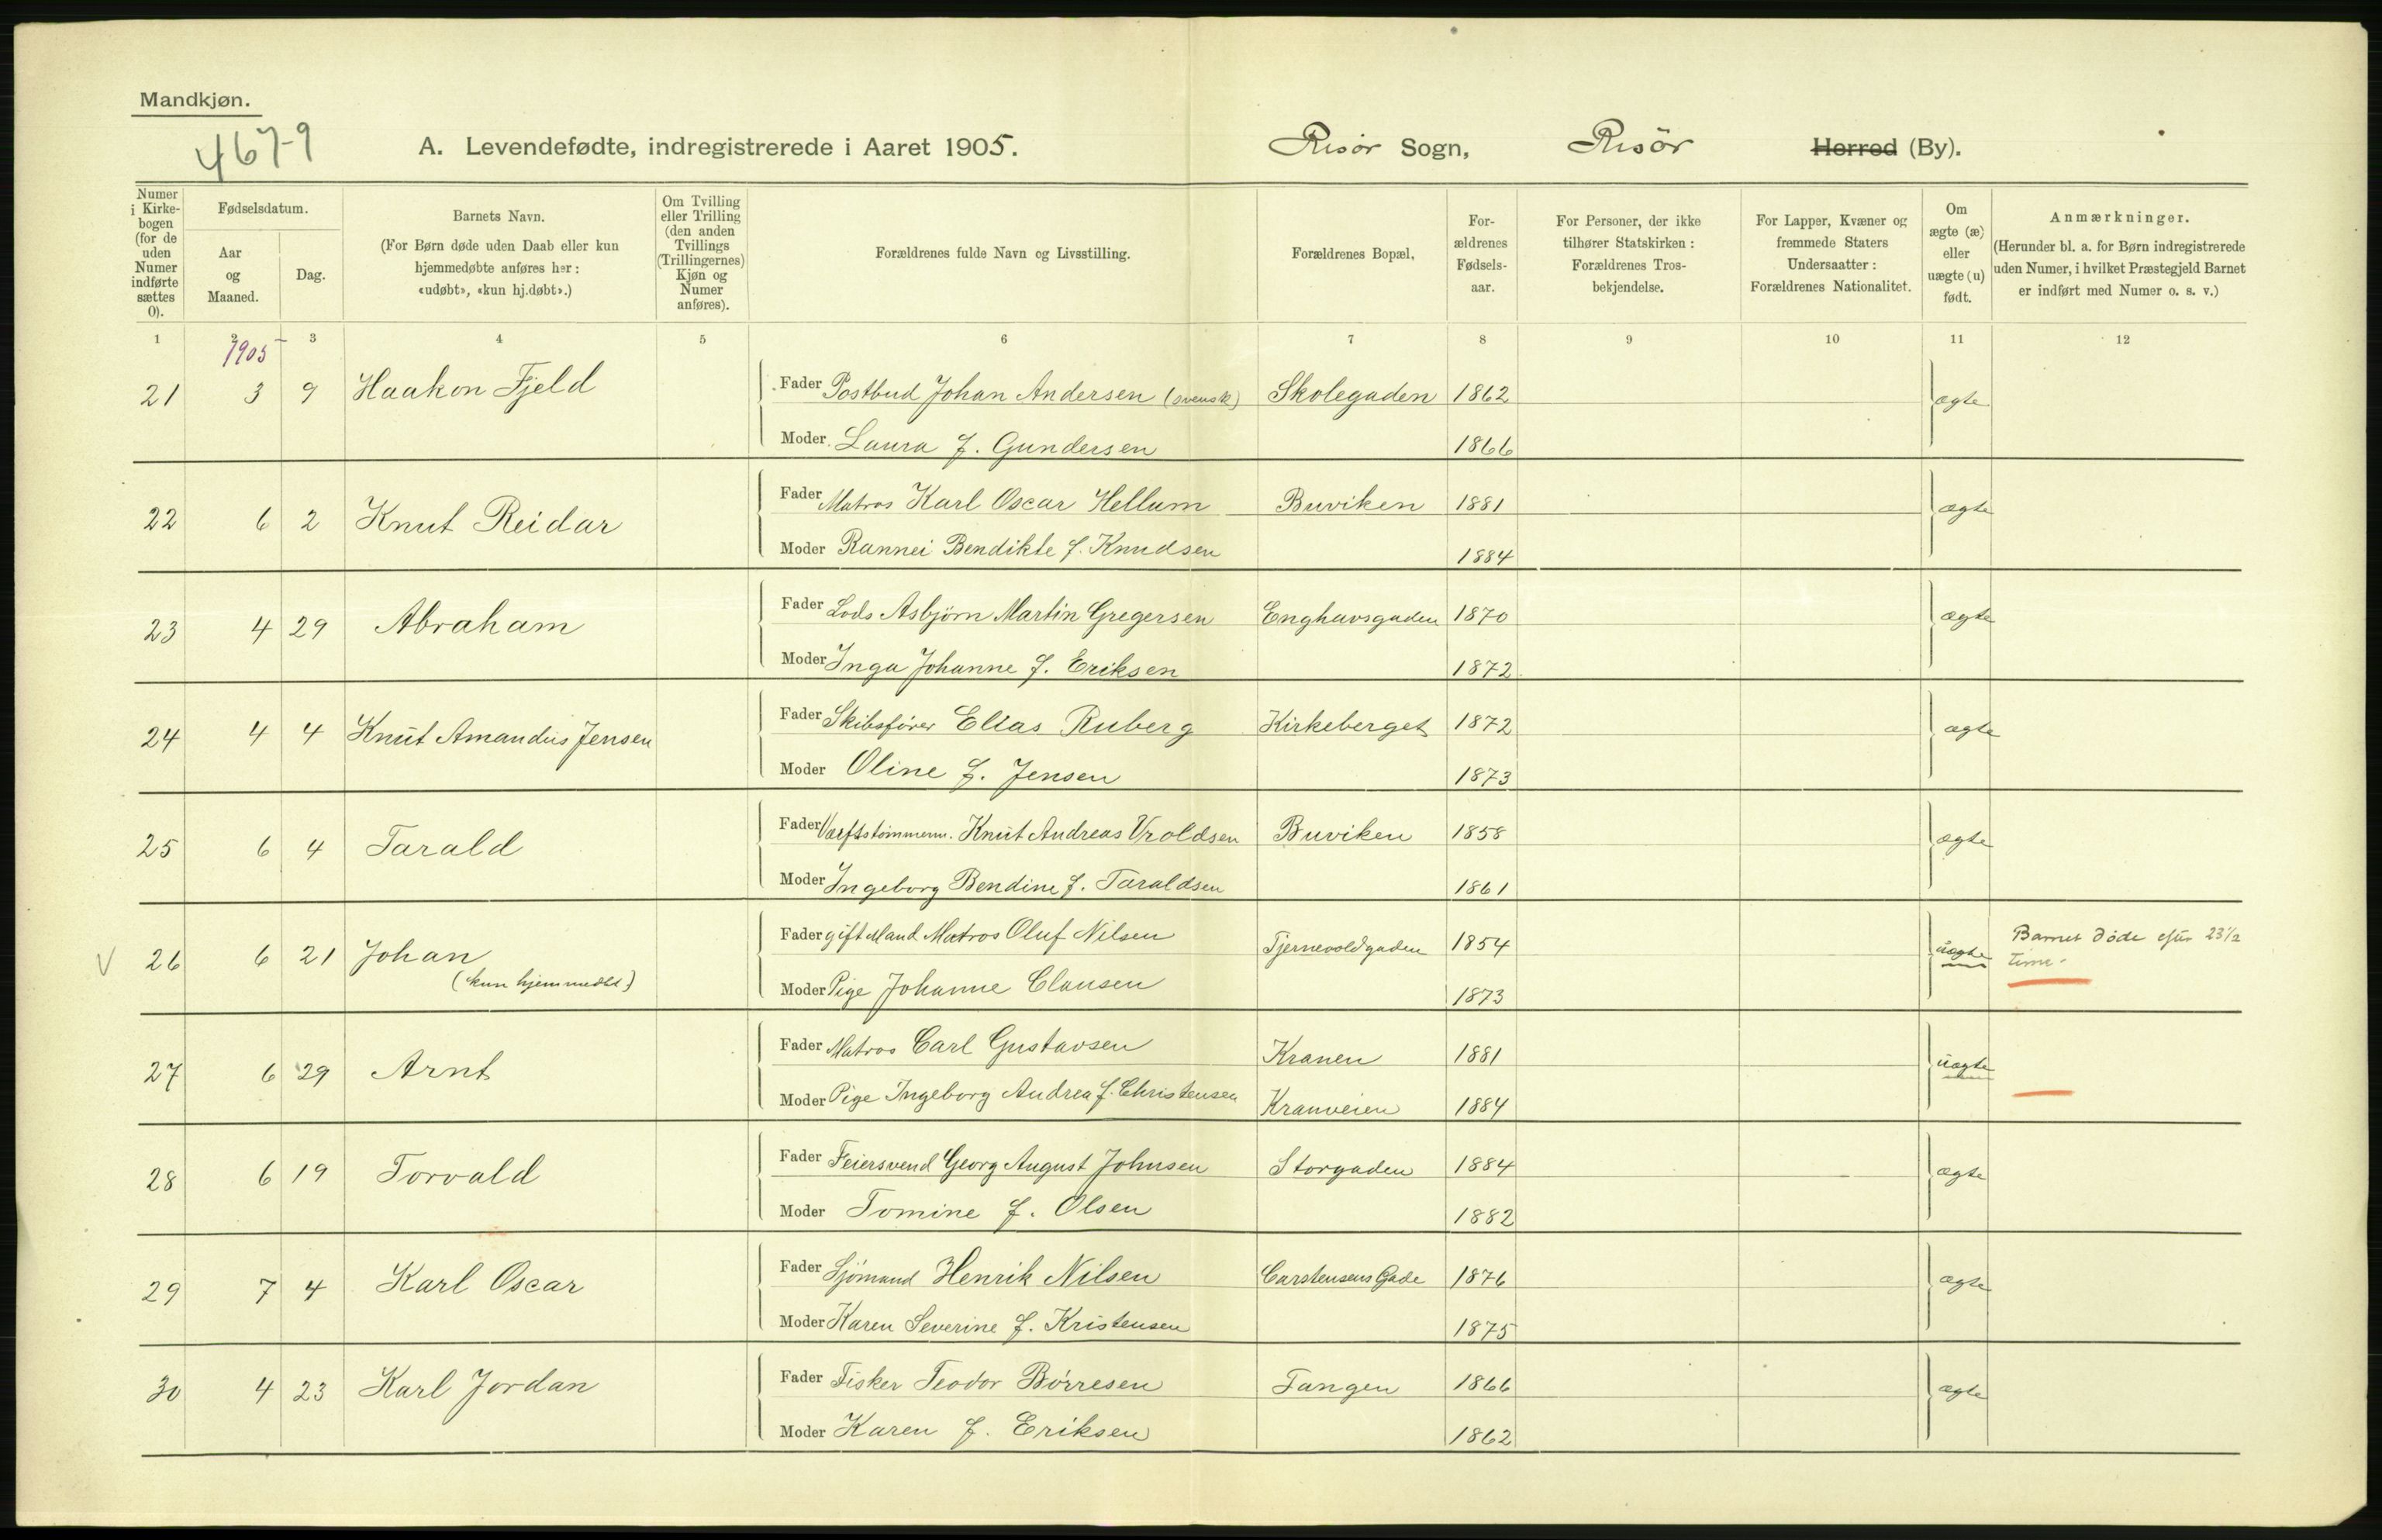 Mandkjøn.
4679
A. Levendefødte, indregistrerede i Aaret 1905. Risør Sogn, Risör Herred (By).
Numer i Kirkebogen (for de uden Numer indførte sættes 0).
Fødselsdatum.
Aar og Maaned.
Dag.
Barnets Navn.
(For Børn døde uden Daab eller kun hjemmedøbte anføres her: «udøbt», «kun hj.døbt».)
Om Tvilling eller Trilling (den anden Tvillings (Trillingernes) Kjøn og Numer anføres).
Forældrenes fulde Navn og Livsstilling.
Forældrenes Bopæl,
For-ældrenes Fødsels-aar.
For Personer, der ikke tilhører Statskirken: Forældrenes Tros-bekjendelse.
For Lapper, Kvæner og fremmede Staters Undersaatter: Forældrenes Nationalitet.
Om ægte (æ) eller uægte (u) født.
Anmærkninger.
(Herunder bl. a. for Børn indregistrerede uden Numer, i hvilket Præstegjeld Barnet er indført med Numer o. s. v.)
1 2 3 4 5 6 7 8 9 10 11 12
1905
21 3 9 Haakon Fjeld Fader Postbud Johan Andersen (svensk) Skolegaden 1862 ægte
Moder Laura f. Gundersen 1866
22 6 2 Knut Reidar Fader Matros Karl Oscar Hellum Buviken 1881 ægte
Moder Rannei Bendikte f. Knudsen 1884
23 4 29 Abraham Fader Lods Asbjørn Martin Gregersen Enghavsgaden 1870 ægte
Moder Inga Johanne f. Eriksen 1872
24 4 4 Knut Amandus Jensen Fader Skibsfører Elias Ruberg Kirkeberget 1872 ægte
Moder Oline f. Jensen 1873
25 6 4 Tarald Fader Værftstømmerm. Knut Andreas Vroldsen Buviken 1858 ægte
Moder Ingeborg Bendine f. Taraldsen 1861
V 26 6 21 Johan Fader gift Mand Matros Oluf Nilsen Tjernevoldgaden 1854 uægte Barnet døde efter 23 1/2
(kun hjemmedbt) Moder Pige Johanne Clausen 1873 time.
27 6 29 Arnt Fader Matros Carl Gustavsen Kranen 1881 uægte
Moder Pige Ingeborg Andrea f. Christensen Kranveien 1884
28 6 19 Torvald Fader Feiersvend Georg August Johnsen Storgaden 1884 ægte
Moder Tomine f. Olsen 1882
29 7 4 Karl Oscar Fader Sjömand Henrik Nilsen Carstensens Gade 1876 ægte
Moder Karen Severine f. Kristensen 1875
30 4 23 Karl Jordan Fader Fisker Teodor Börresen Tangen 1866 ægte
Moder Karen f. Eriksen 1862